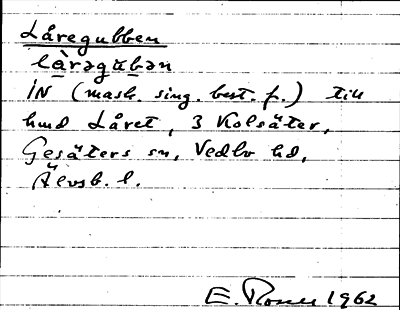 Låregubben
làrəgubən
IN (mask. sing. best. f.) till
hmd Låret, 3 Kolsäter,
Gesäters sn, Vedbo hd,
Älvsb. l.
E. Rosell 1962